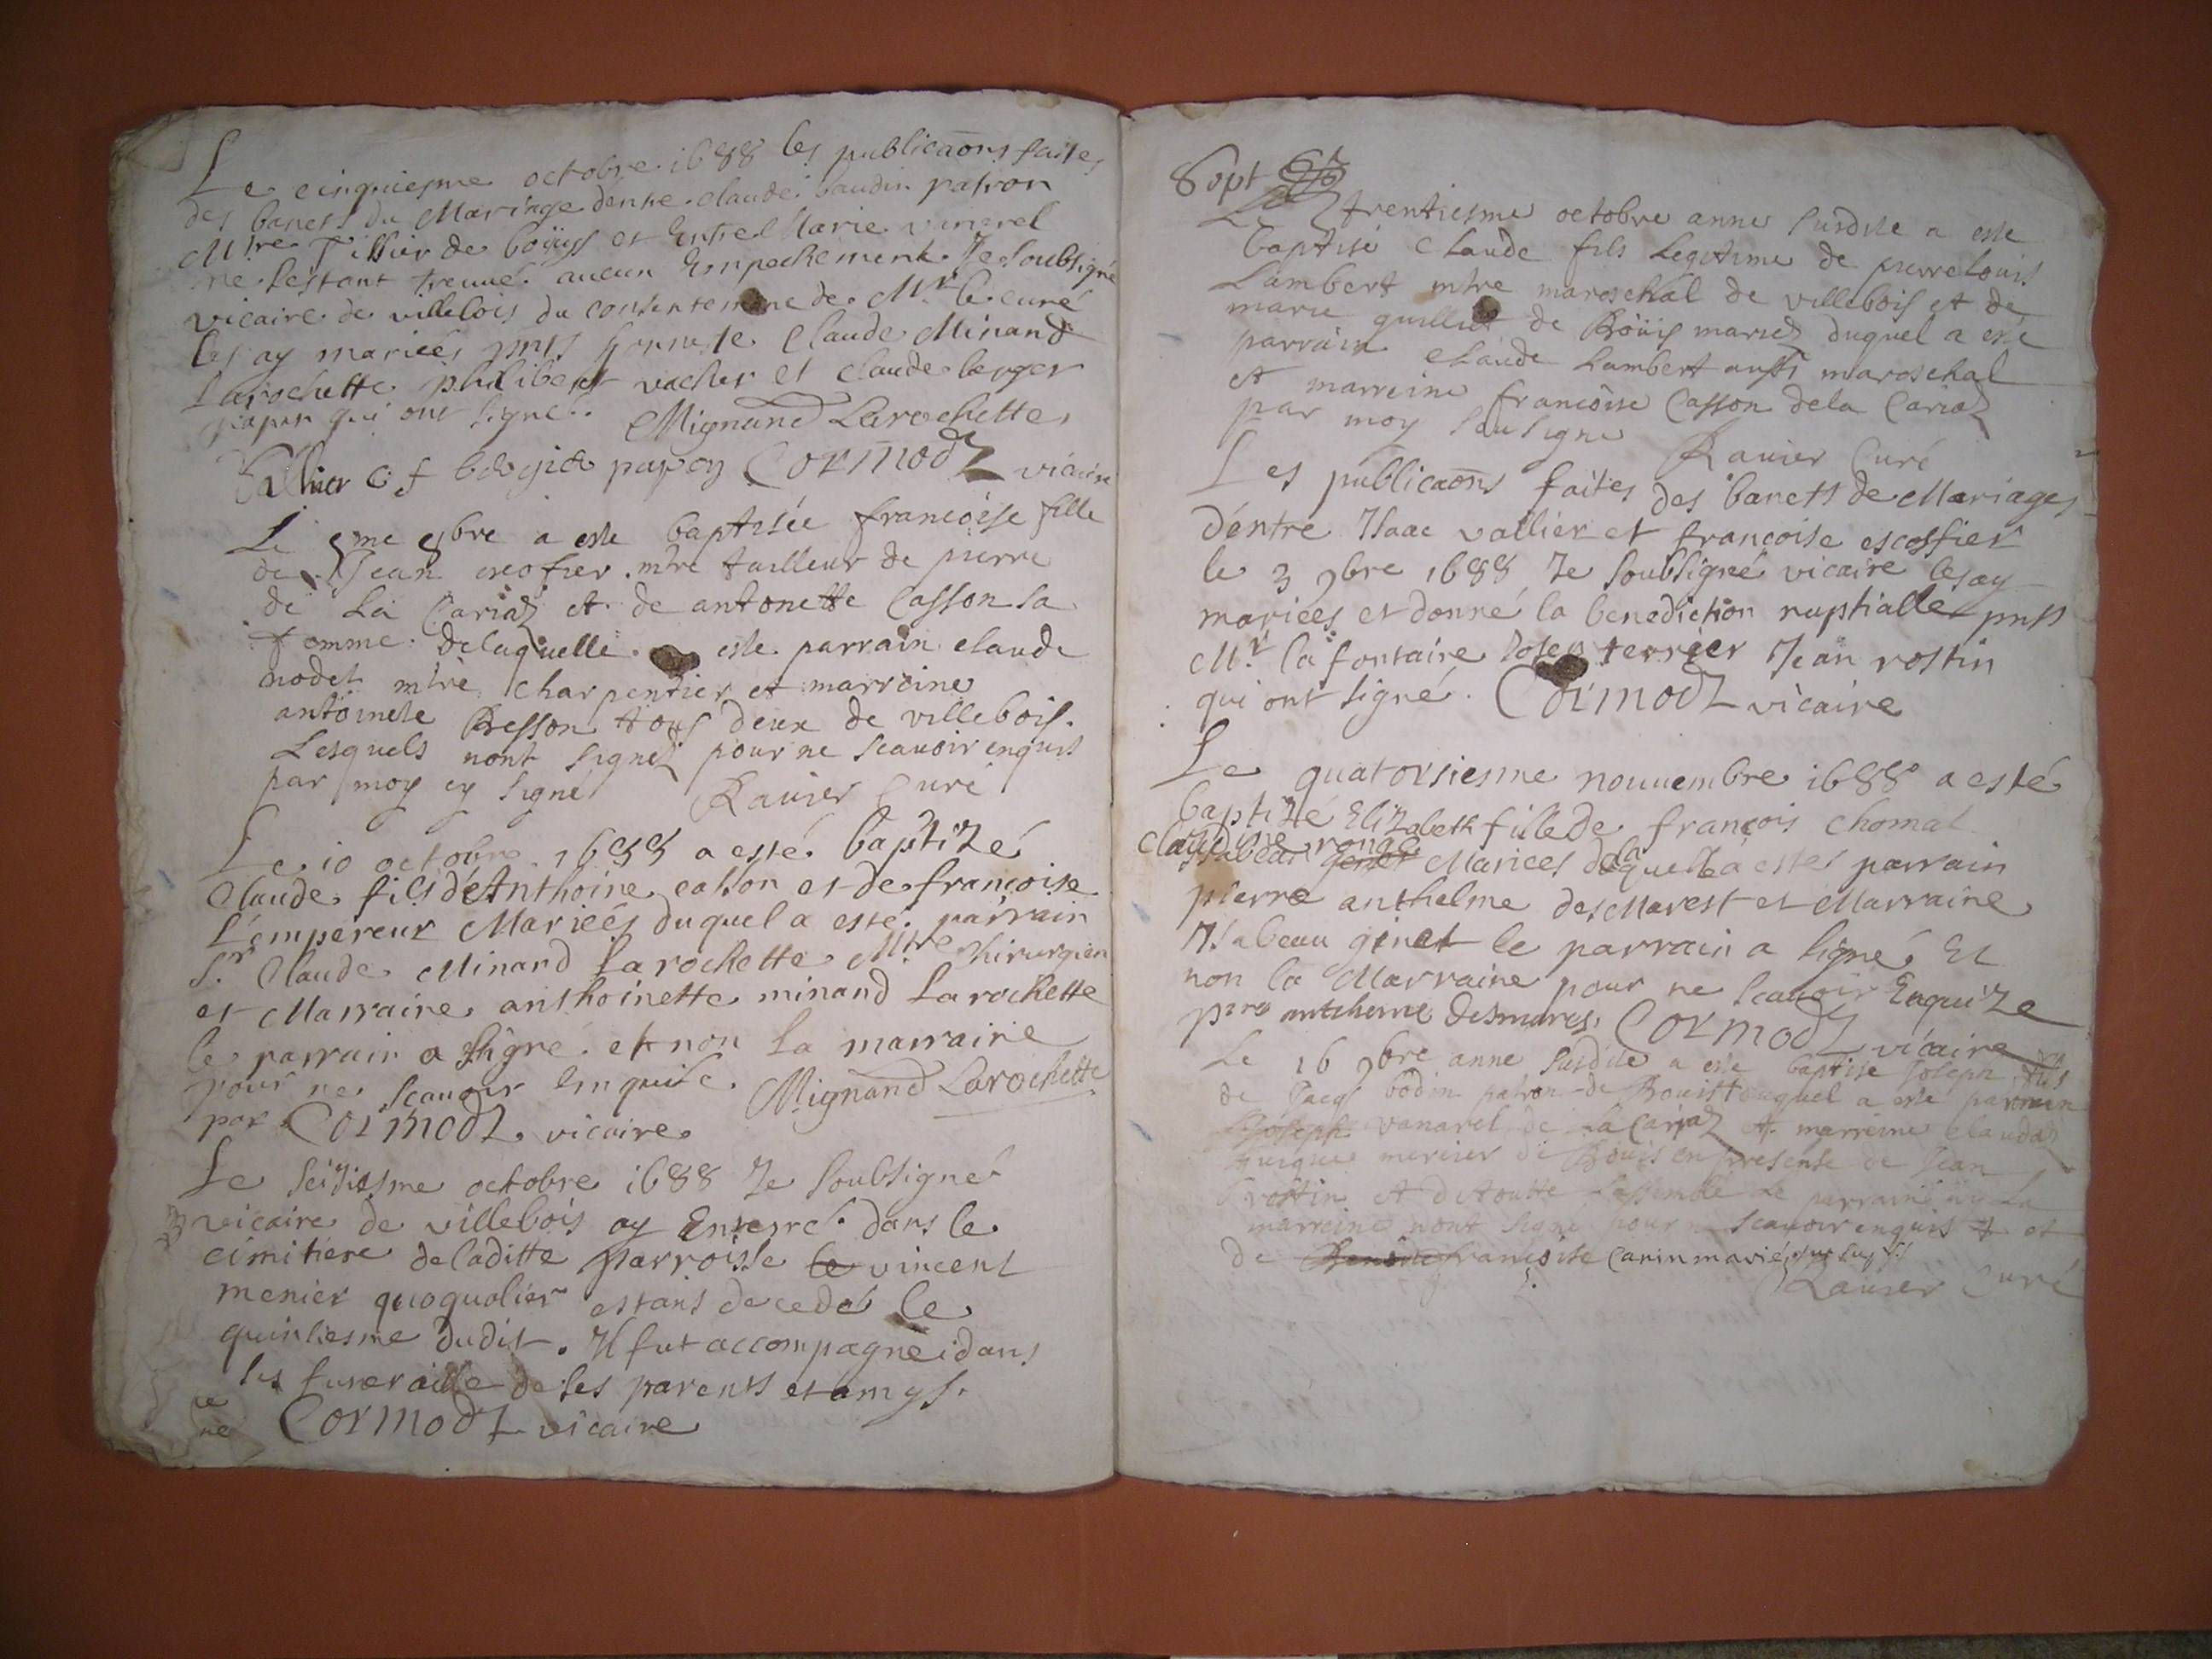 Le cinquiesme octobre 1688 les publicaons faites
des bancts du Mariage dentre claude baudin patron
Mtre de boüys et Entre Marie vanarel
ne sestant treuué aucun Empechement Je soubsigné
vicaire de villebois du consentement de Mr le curé
les ay mariées pnts honneste Claude Minand
Larochette philibert vacher et claude berger
papin qui ont signé. Mignand Larochette
Cormodz vicaire
Le 5me 8bre a este baptisée francoise fille
de Jean escofier mtre tailleur de pierre
de La Cariaz et de antonette Casson sa
femme delaquelle este parrain claude
nodet mtre charpentier et marreine
antoinete Besson tous deux de villebois.
Lesquels nont signez pour ne scauoir enquis
par moy cy signé Rauier Curé
Le 10 octobre 1688 a esté baptizé
Claude fils d'Anthoine casson et de francoise
L'empereur Mariées duquel a esté parrain
Sr Claude Minard Larochette Mtre Chirurgien
et Marraine anthoinette minand Larochette
le parrain a signé et non la marraine
pour ne scauoir Enquise. Mignand Larochette
par Cormodz vicaire
Le seisiesme octobre 1688 Je soubsigné
vicaire de villebois ay Enterré dans le
cimitiere de laditte parroisse le vincent
menier quoqualier estant decedé le
quinsiesme dudit. Il fut accompagné dans
ses funeraille de ses parents et amys.
Cormodz vicaire
Sept
Le trentiesme octobre anne susdite a este
baptisé Claude fils Legitime de pierre louis
Lambert mtre mareschal de villebois et de
marie guilliet de Boüis mariez duquel a esté
parrain claude Lambert aussi mareschal
et marreine francoise Casson dela Cariaz
par moy sousigné Rauier Curé
Les publicaons faites des bancts de Mariage
d'entre Isaac vallier et francoise escoffier
le 3 9bre 1688 Je soubsigneé vicaire les ay
mariées et donné la benediction nuptialle pnts
Mr la fontaine Josep terrier Jean rostin
qui ont signé. Cormodz vicaire
Le quatorsiesme nouuembre 1688 a esté
baptizé Elizabeth fille de françois chomal
claudine ronge
Isabeau genet Mariées de laquelle a estes parrain
pierre anthelme desMarest et Marraine
Isabeau ginet le parrain a signé Et
non la Marraine pour ne scauoir Enquize
pre antelme desmares. Cormodz vicaire
Le 16 9bre anne susdite a este baptise Joseph fils
de Jacqs bodin patron de Bouis duquel a este parrain
Joseph vanarel de La Cariaz et marreine clauda
mercier de Bouis en presense de Jean
rostin et de toutte Lassemblé Le parrain ny La
marreine nont signe pour ne scauoir enquis et
de francoise Carin mariés
Rauier Curé